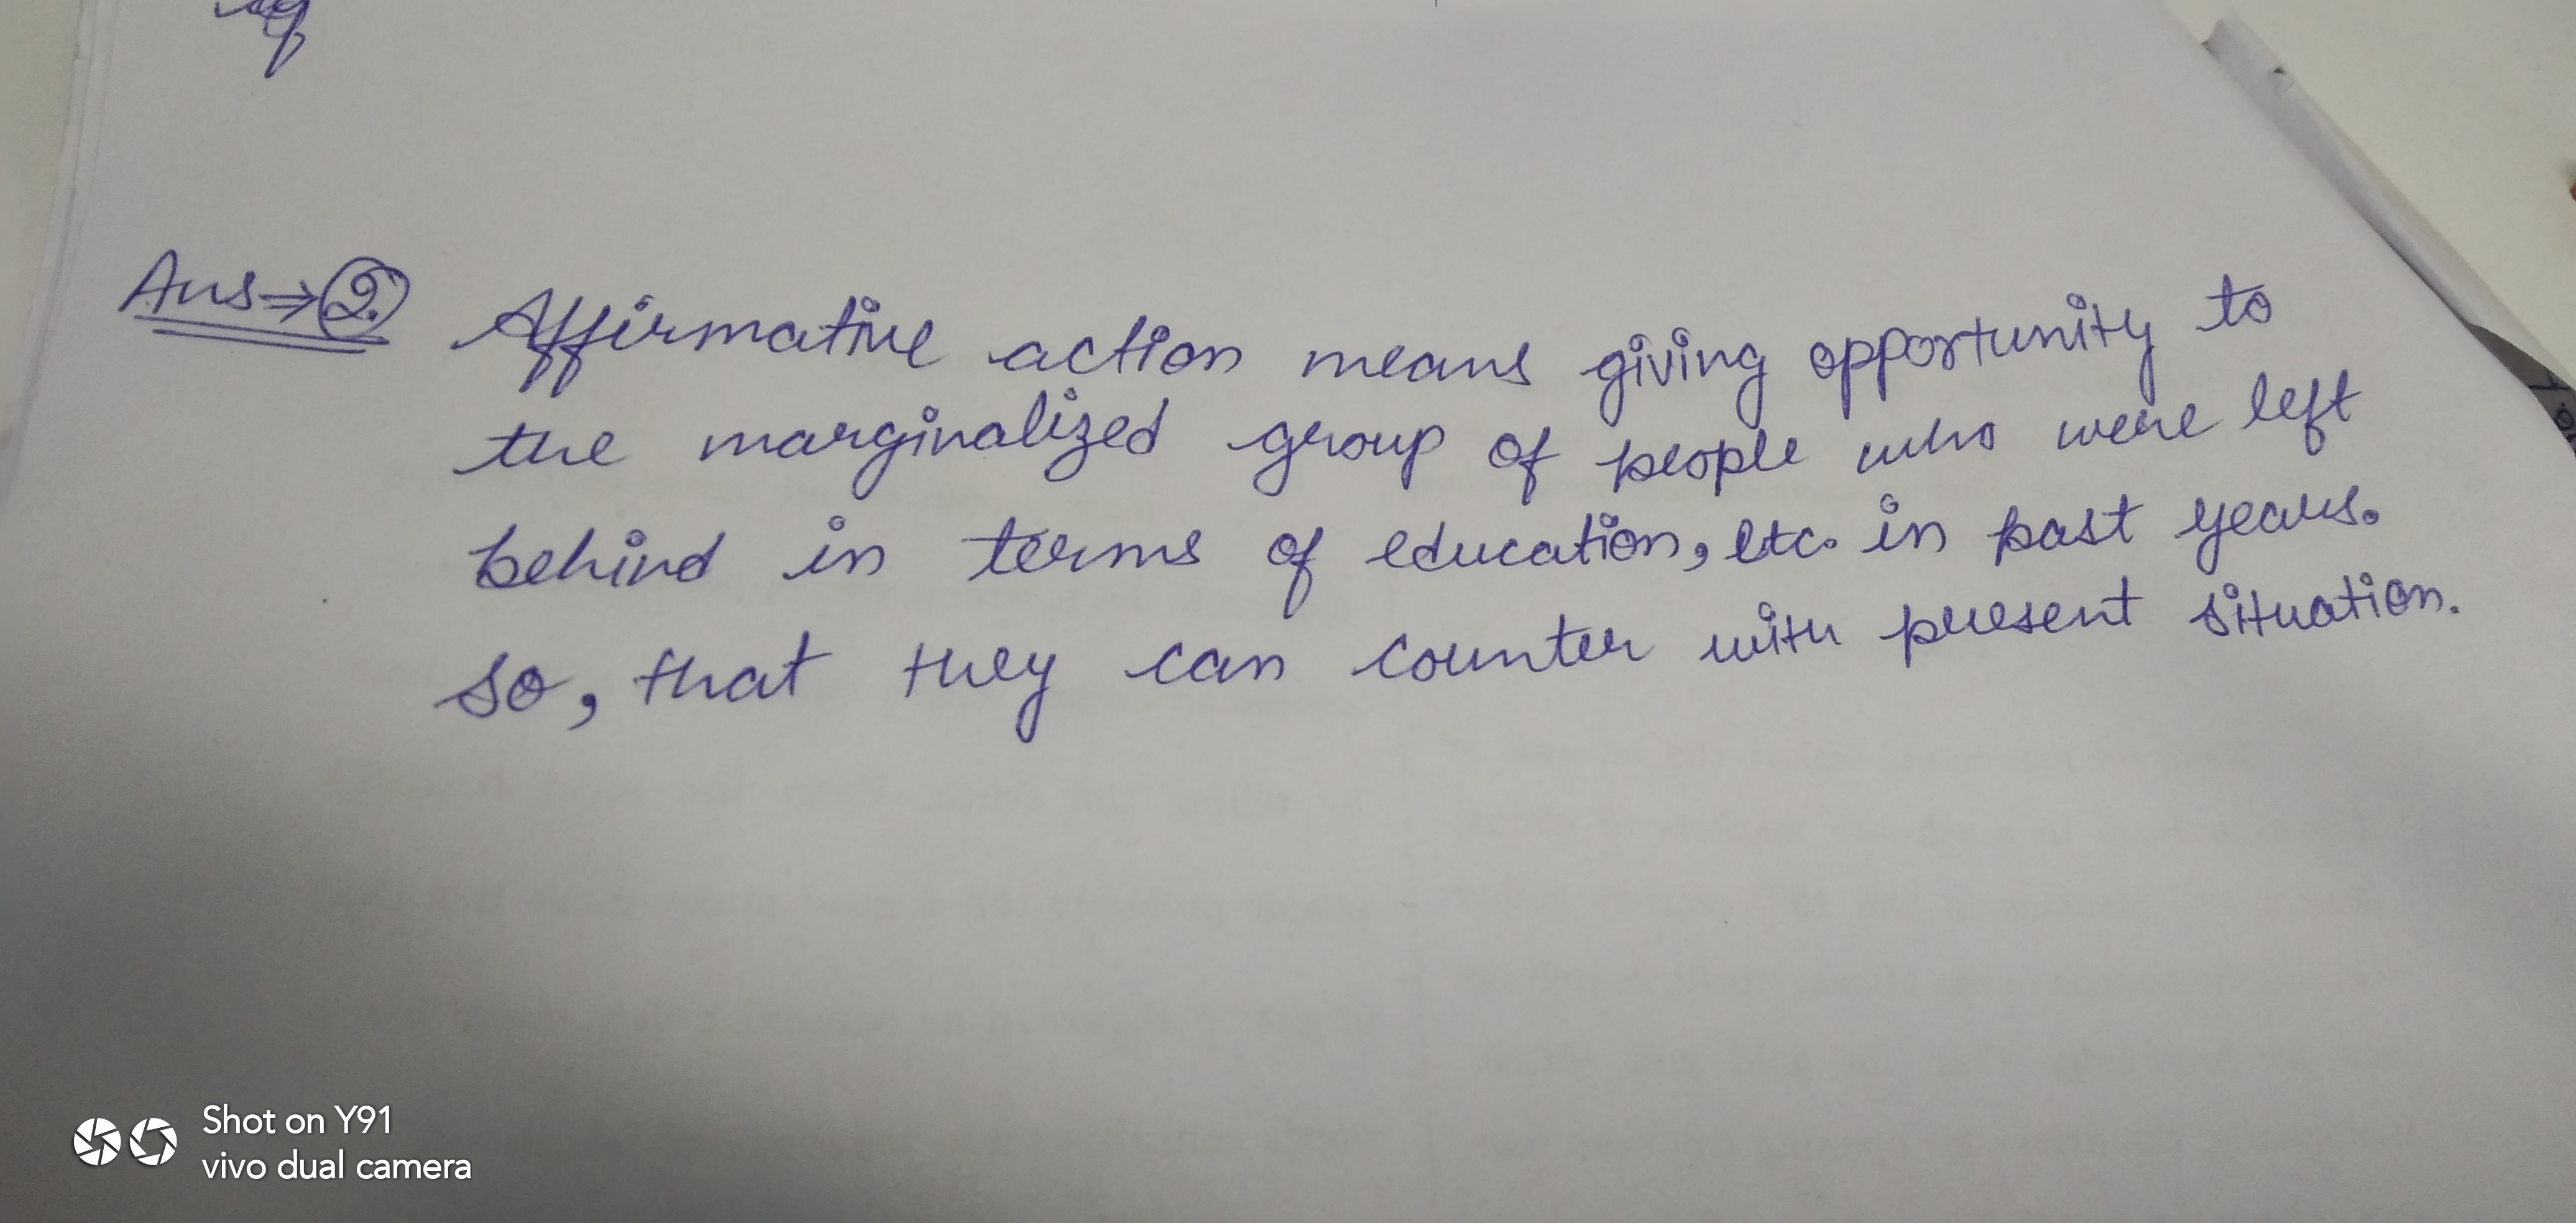 Ans⇒ 2.
Affirmative action means giving opportunity to
the marginalized group of people who were left
behind in terms of education, etc. in past years.
so, that they can counter with present situation.
Shot on Y91
vivo dual camera